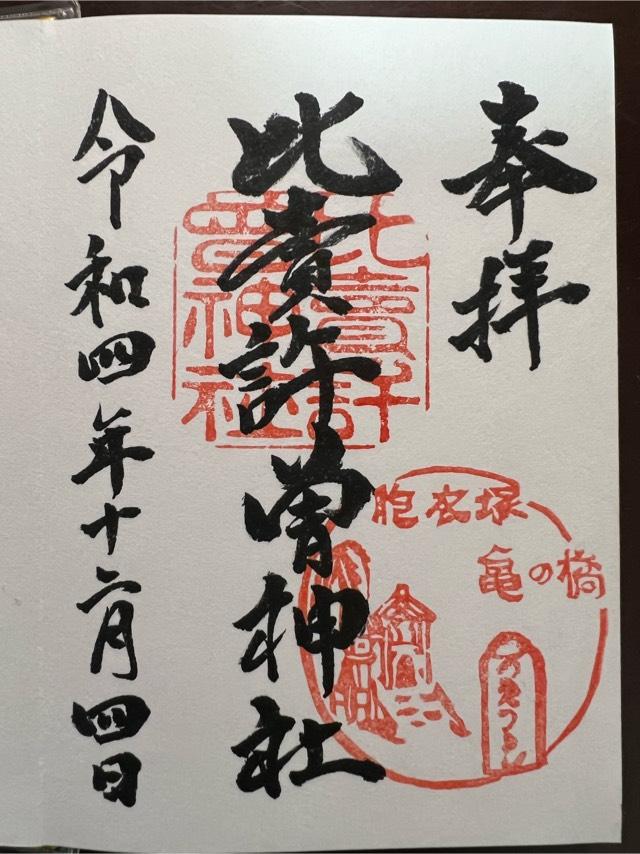 奉拝
比賣許曽神社
比賣許曽神社
令和四年十二月四日
胞衣塚
亀の橋